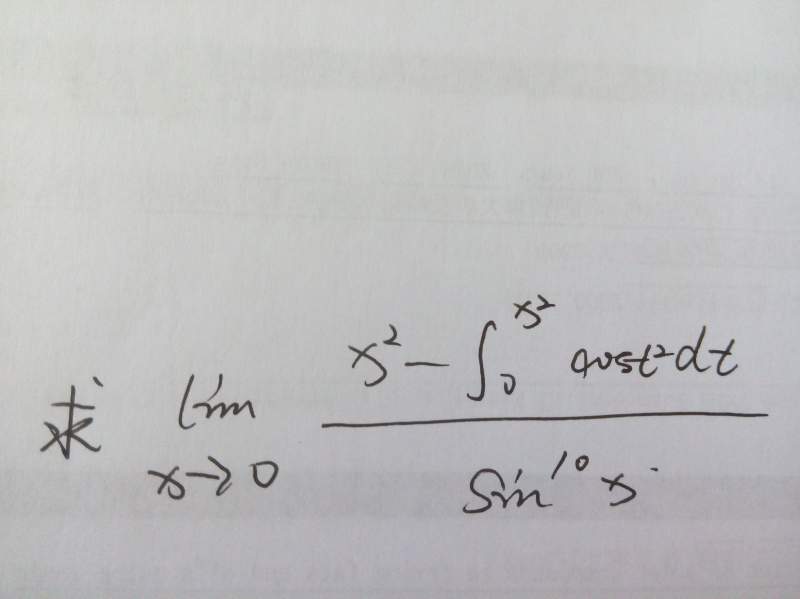 求 lim x→0 (x² − ∫₀^{x²} cos t² dt) / sin¹⁰ x